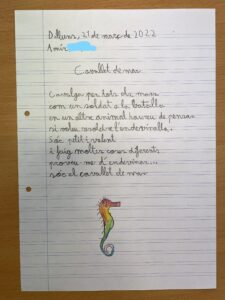 Dilluns, 21 de març de 2022
Amir
Cavallet de mar
Cavalga per tots els mars
com un soldat a la batalla
en un altre animal haureu de pensar
si voleu resoldre l'endevinalla.
Sóc petit i valent
i faig moltes coses diferents
proveu-me d'endevinar...
sóc el cavallet de mar